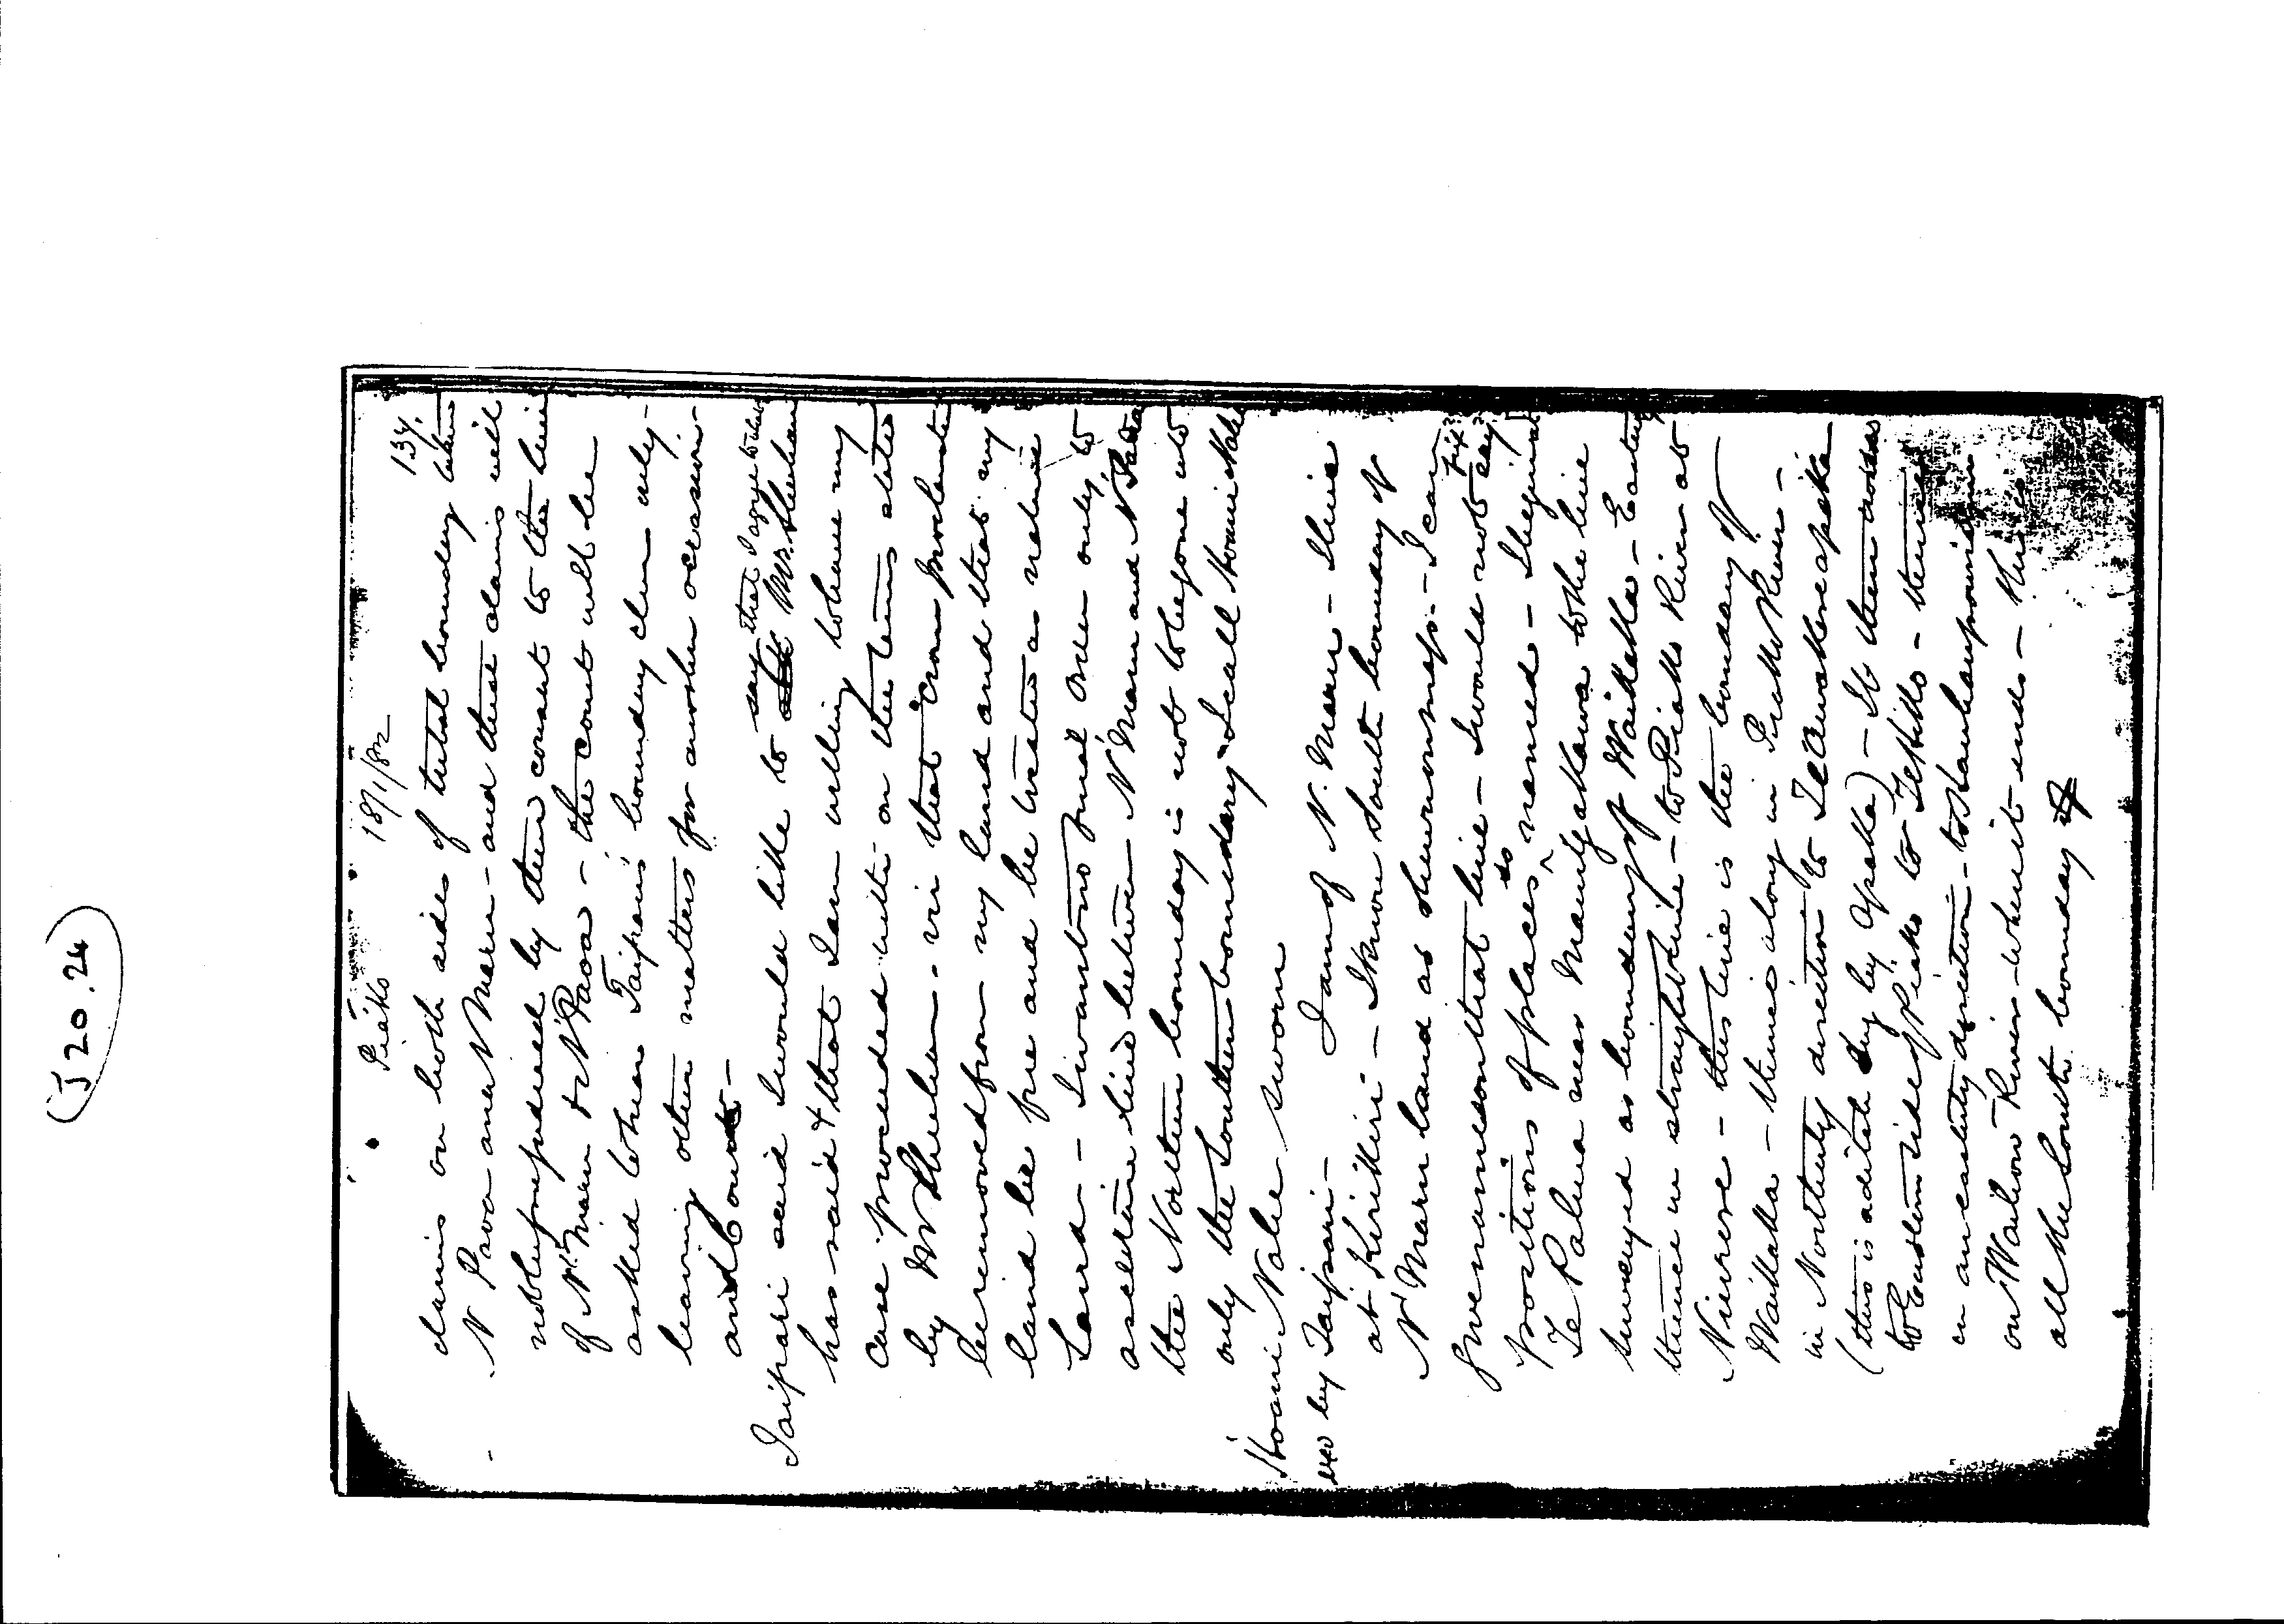 J 20.24
Piako 18/1/82
137.
claims on both sides of tribal boundary between
N' Paoa and N' Maru - and these claims will
not be prejudiced by their consent to the line
of N' Maru & N' Paoa - the court will be
asked to hear Taipari's boundary claim only -
leaving other matters for another occasion
and Court -
Taipari said I would like to say that I agree to what Mr Sheehan
has said & that I am willing to have my
case proceeded with on the terms stated
by Mr Sheehan - viz that Crown proclamation
be removed from my land and that my
land be free and be treated as native
Land - I want no final order only to
ascertain line between N' Maru and N' Paoa
the Northern boundary is not to be gone into
only the Southern boundary I call Hoani Nahe
Hoani Nahe sworn
exd by Taipari - I am of N. Maru - I live
at Kirikiri - I know South boundary of
N' Maru land as shewn on map - I can
give names on that line - I would not say fix
positions of places as named - I begin at
Te Pahua near Maungakawa to the line
surveyed as boundary of Waikaka - Easterly
thence in straight line - to Piako River at
Niurere - this line is the boundary of
Waikaka - thence along in Piako River -
in Northerly direction to Te Awakereapeka
(this is a ditch dug by Apeka) - It then crosses
to Eastern side of Piako to Te Kiko - thence
in an easterly direction - to
on Waihou River - where it ends - this
all the South boundary